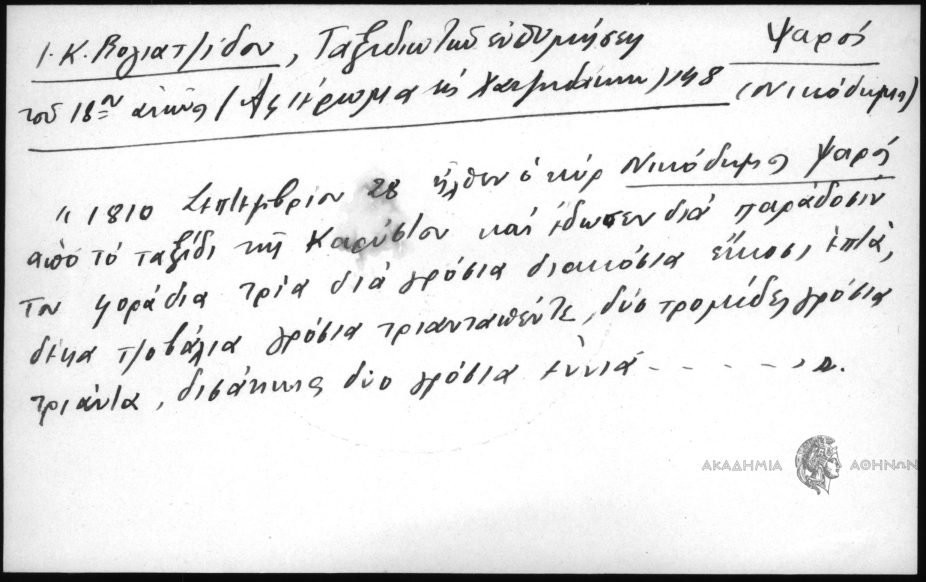 Ι. Κ. Βογιατζίδου, Ταξιδιωτικαί ενθυμήσεις Ψαρός
του 18ου αιώνος (Αφιέρωμα εις Χατζηδάκιν) 148 (Νικόδημος)
"1810 Σεπτεμβρίου 28 ήλθεν ο κυρ Νικόδημος Ψαρός
από το ταξίδι της Καρύστου και έδωσεν διά παράδοσιν
του φοράδια τρία διά γρόσια διακόσια είκοσι επτά,
δέκα τζοβάλια γρόσια τριανταπέντε, δύο τρομίδες γρόσια
τριάντα, δισάκκια δύο γρόσια εννιά - - - - - , ".
ΑΚΑΔΗΜΙΑ ΑΘΗΝΩΝ